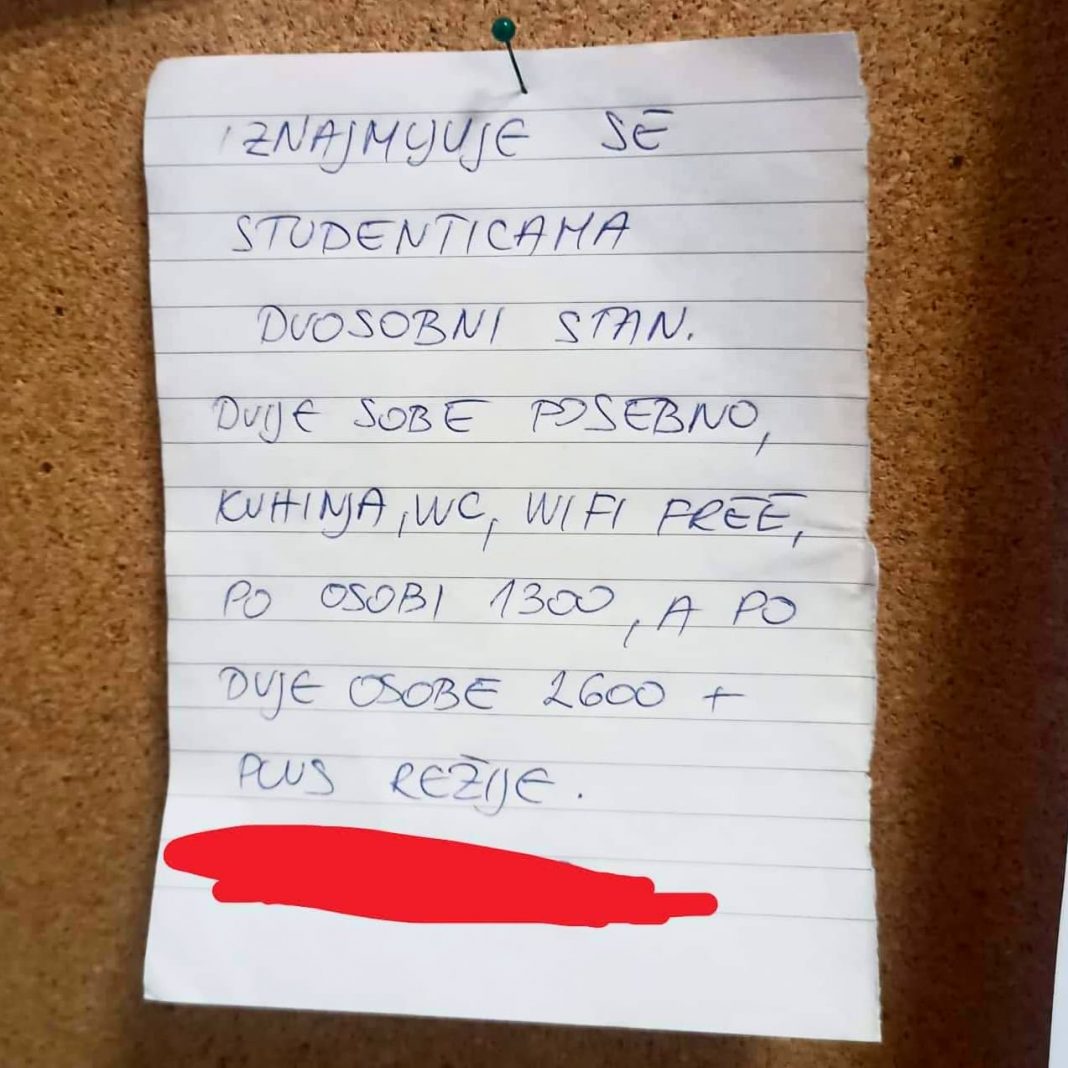 IZNAJMLJUJE SE
STUDENTICAMA
DVOSOBNI STAN.
DVIJE SOBE POSEBNO,
KUHINJA, WC, WIFI FREE,
PO OSOBI 1300, A PO
DVIJE OSOBE 2600 +
PLUS REŽIJE.